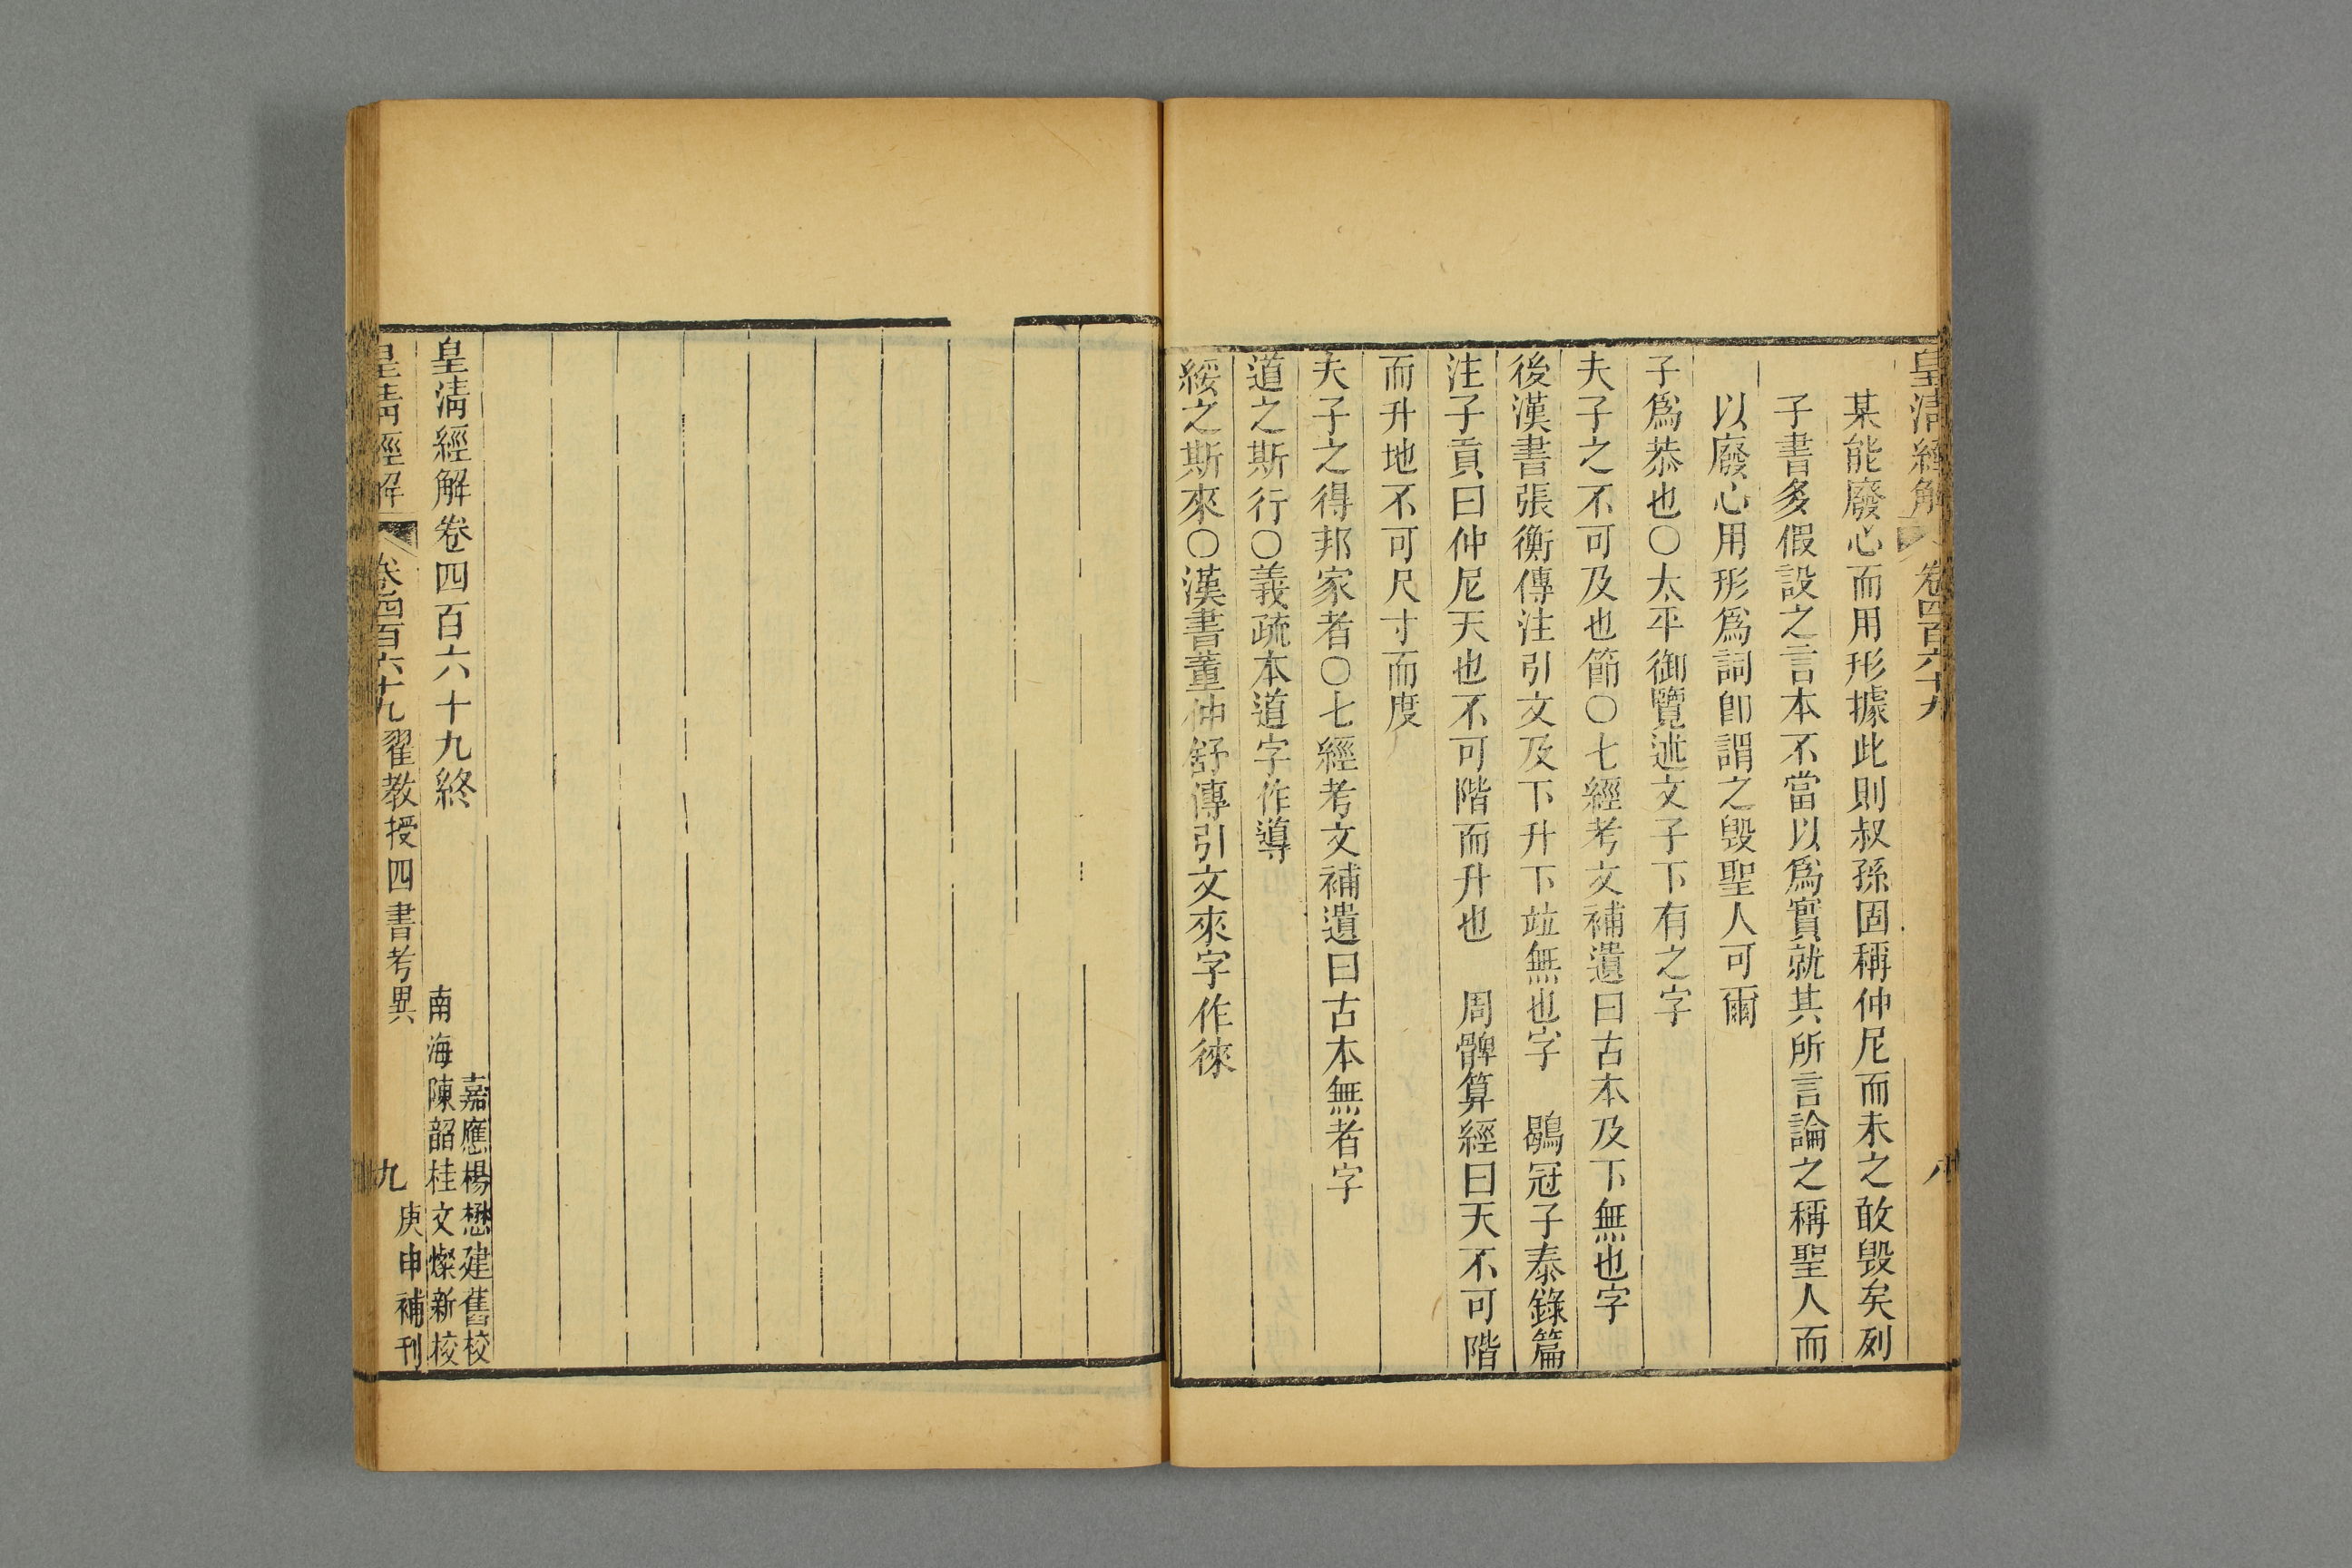 皇清經解 卷四百六十九 八
某能廢心而用形據此則叔孫固稱仲尼而未之敢毀矣列
子書多假設之言本不當以爲實就其所言論之稱聖人而
以廢心用形爲詞卽謂之毀聖人可爾
子爲恭也〇太平御覽述文子下有之字
夫子之不可及也節〇七經考文補遺曰古本及下無也字
後漢書張衡傳注引文及下升下竝無也字　鶡冠子泰錄篇
注子貢曰仲尼天也不可階而升也　周髀算經曰天不可階
而升地不可尺寸而度
夫子之得邦家者〇七經考文補遺曰古本無者字
道之斯行〇義疏本道字作導
綏之斯來〇漢書董仲舒傳引文來字作徠
嘉應楊懋建舊校
皇清經解卷四百六十九終
南海陳韶桂文燦新校
皇清經解 卷四百六十九 翟教授四書考異 九 庚申補刊